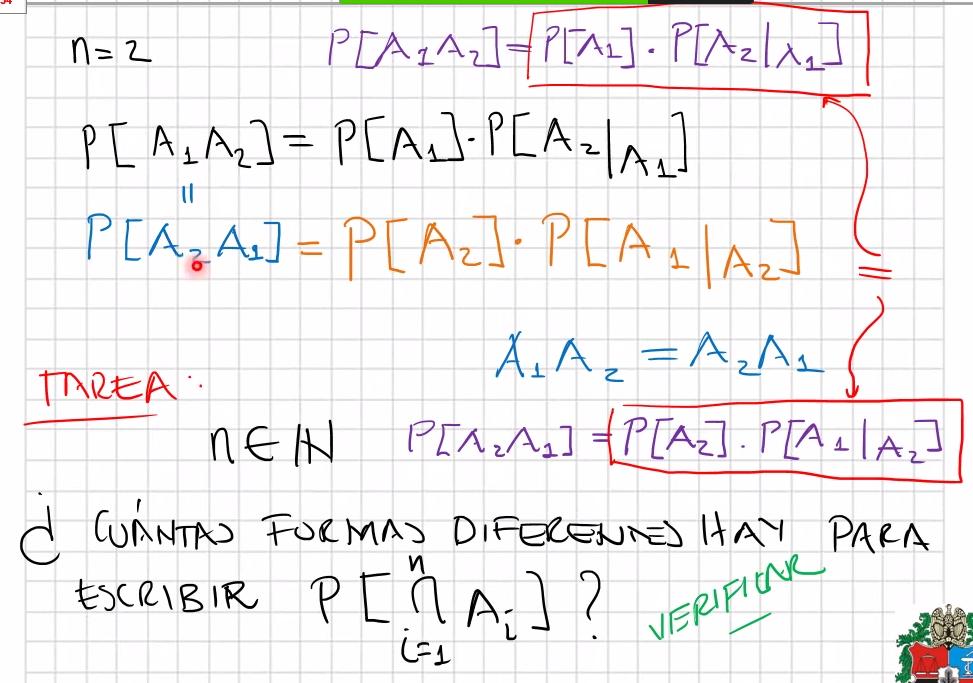 54
n=2 P[A₁A₂]=P[A₁]·P[A₂|A₁]
P[A₁A₂]=P[A₁]·P[A₂|A₁]
=
P[A₂A₁]=P[A₂]·P[A₁|A₂]
=
A₁A₂=A₂A₁
TAREA:
n∈ℕ P[A₂A₁]=P[A₂]·P[A₁|A₂]
¿CUÁNTAS FORMAS DIFERENTES HAY PARA
ESCRIBIR P[⋂ⁿᵢ₌₁ Aᵢ]?
VERIFICAR